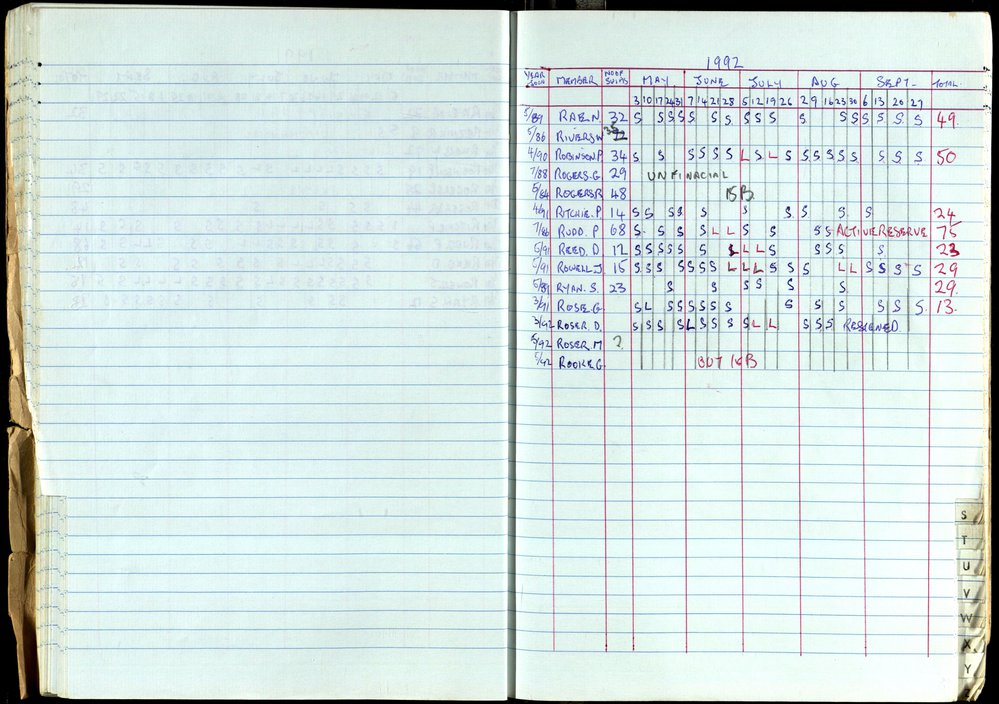 1992
YEAR JOIN MEMBER NO OF SWIMS MAY JUNE JULY AUG SEPT- TOTAL
3 10 17 24 31 7 14 21 28 5 12 19 26 2 9 16 23 30 6 13 20 27
5/89 RAE.N 32 S S S S S S S S S S S S S S S S S 49
5/86 RIVERS.W
4/90 ROBINSON.P. 34 S S S S S S L S L S S S S S S S S S 50
7/88 ROGERS.G 29 UNFINACIAL
5/84 ROGERS.R 48 15B
4/91 RITCHIE.P 14 S S S S S S S S S S 24
7/86 RUDD. P 68 S S S S L L S S S S ACTIVE RESERVE 75
5/91 REED. D 12 S S S S S S L L L S S S S 23
7/91 ROWELL.J 15 S S S S S S S L L L S S S L L S S S S 29
5/89 RYAN. S. 23 S S S S S S 29.
3/91 ROSE.G S L S S S S S S S S S S S S S 13.
3/92 ROSER. D. S S S S L S S S S L L S S S RESIGNED
5/92 ROSER. M ?
5/92 ROOKE.G. OUT 16B
S
T
U
V
W
X
Y